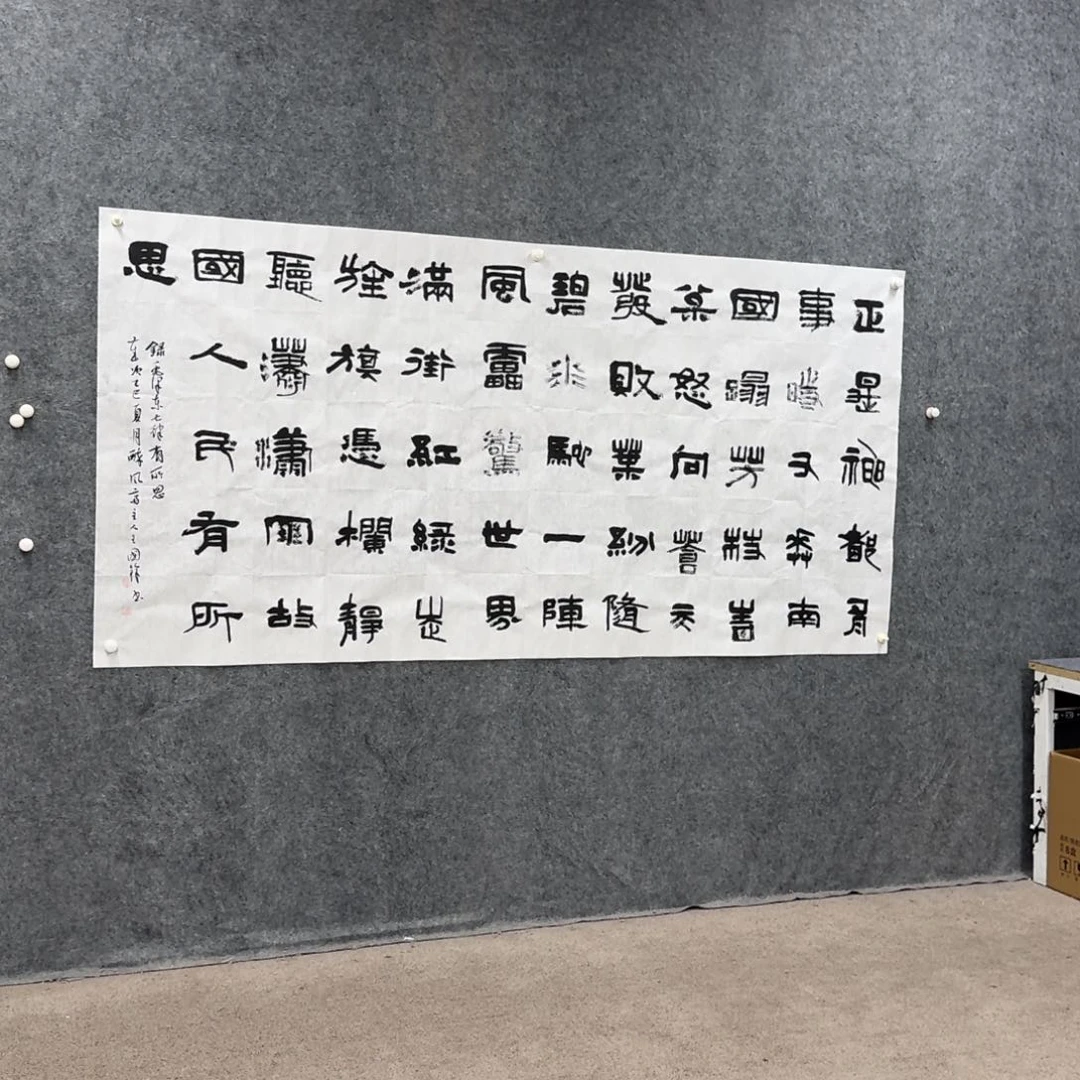 正是神都有
事時又來南
國蹋芳枝青
松怒向蒼天
發敗葉紛隨
碧水馳一陣
風靁驚世界
滿街紅綠走
旌旗憑欄靜
聽瀟瀟雨故
國人民有所
思
錄毛澤東七律有所思
歲次乙巳夏月醉風齋主人王國书